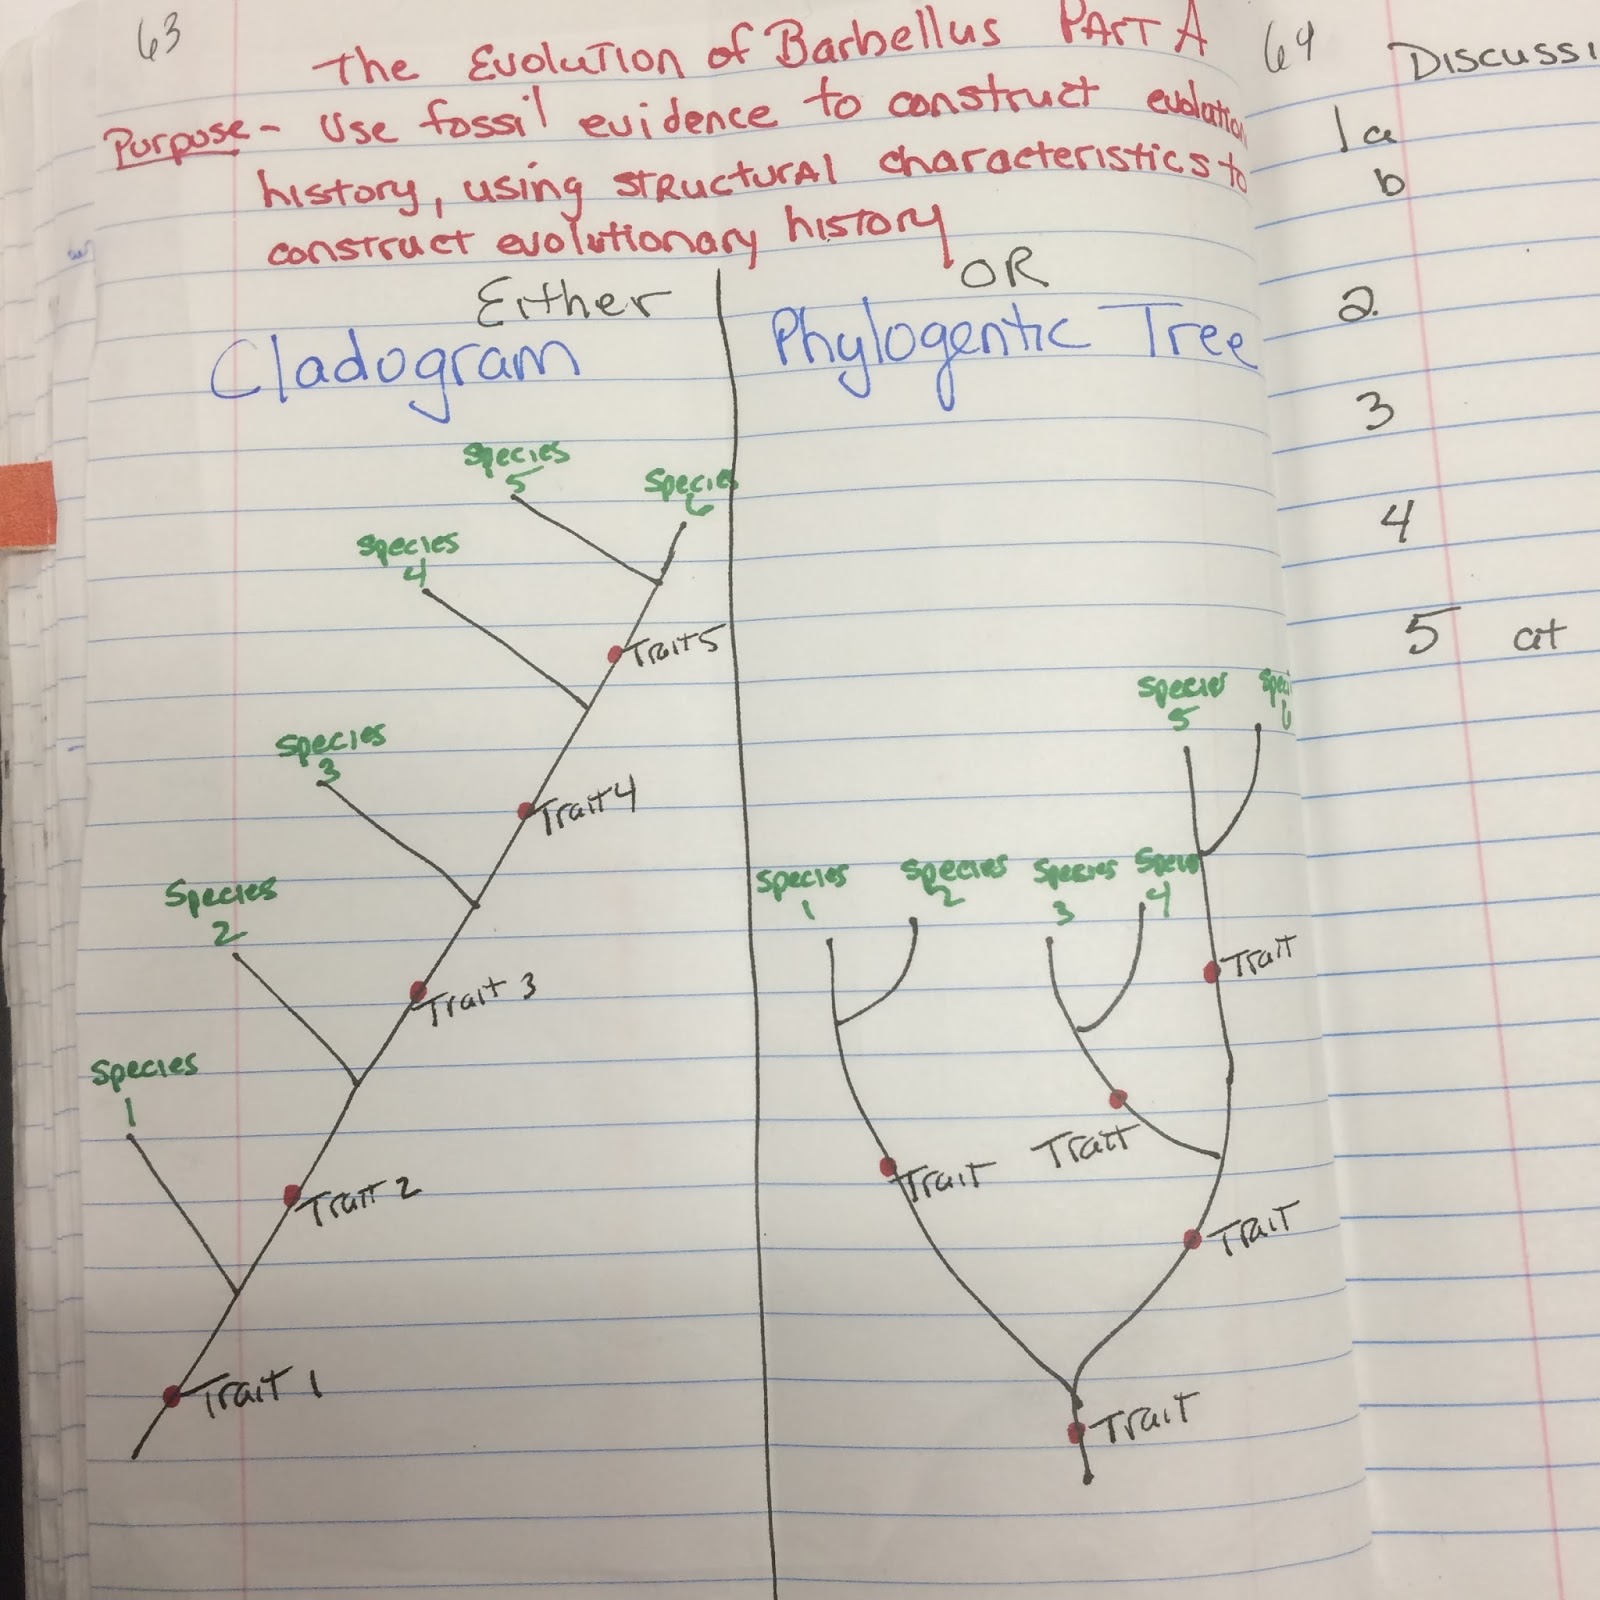 63
The Evolution of Barbellus Part A
Purpose - Use fossil evidence to construct evolution
history, using structural characteristics to
construct evolutionary history
Either
OR
Cladogram
Phylogentic Tree
Species
5
Species
6
Species
4
Trait 5
Species
3
Trait 4
Species
2
Trait 3
Species
1
Trait 2
Trait 1
Species
5
Speci
6
Species
1
Species
2
Species
3
Species
4
Trait
Trait
Trait
Trait
Trait
64
Discussi
1a
b
2.
3
4
5 at